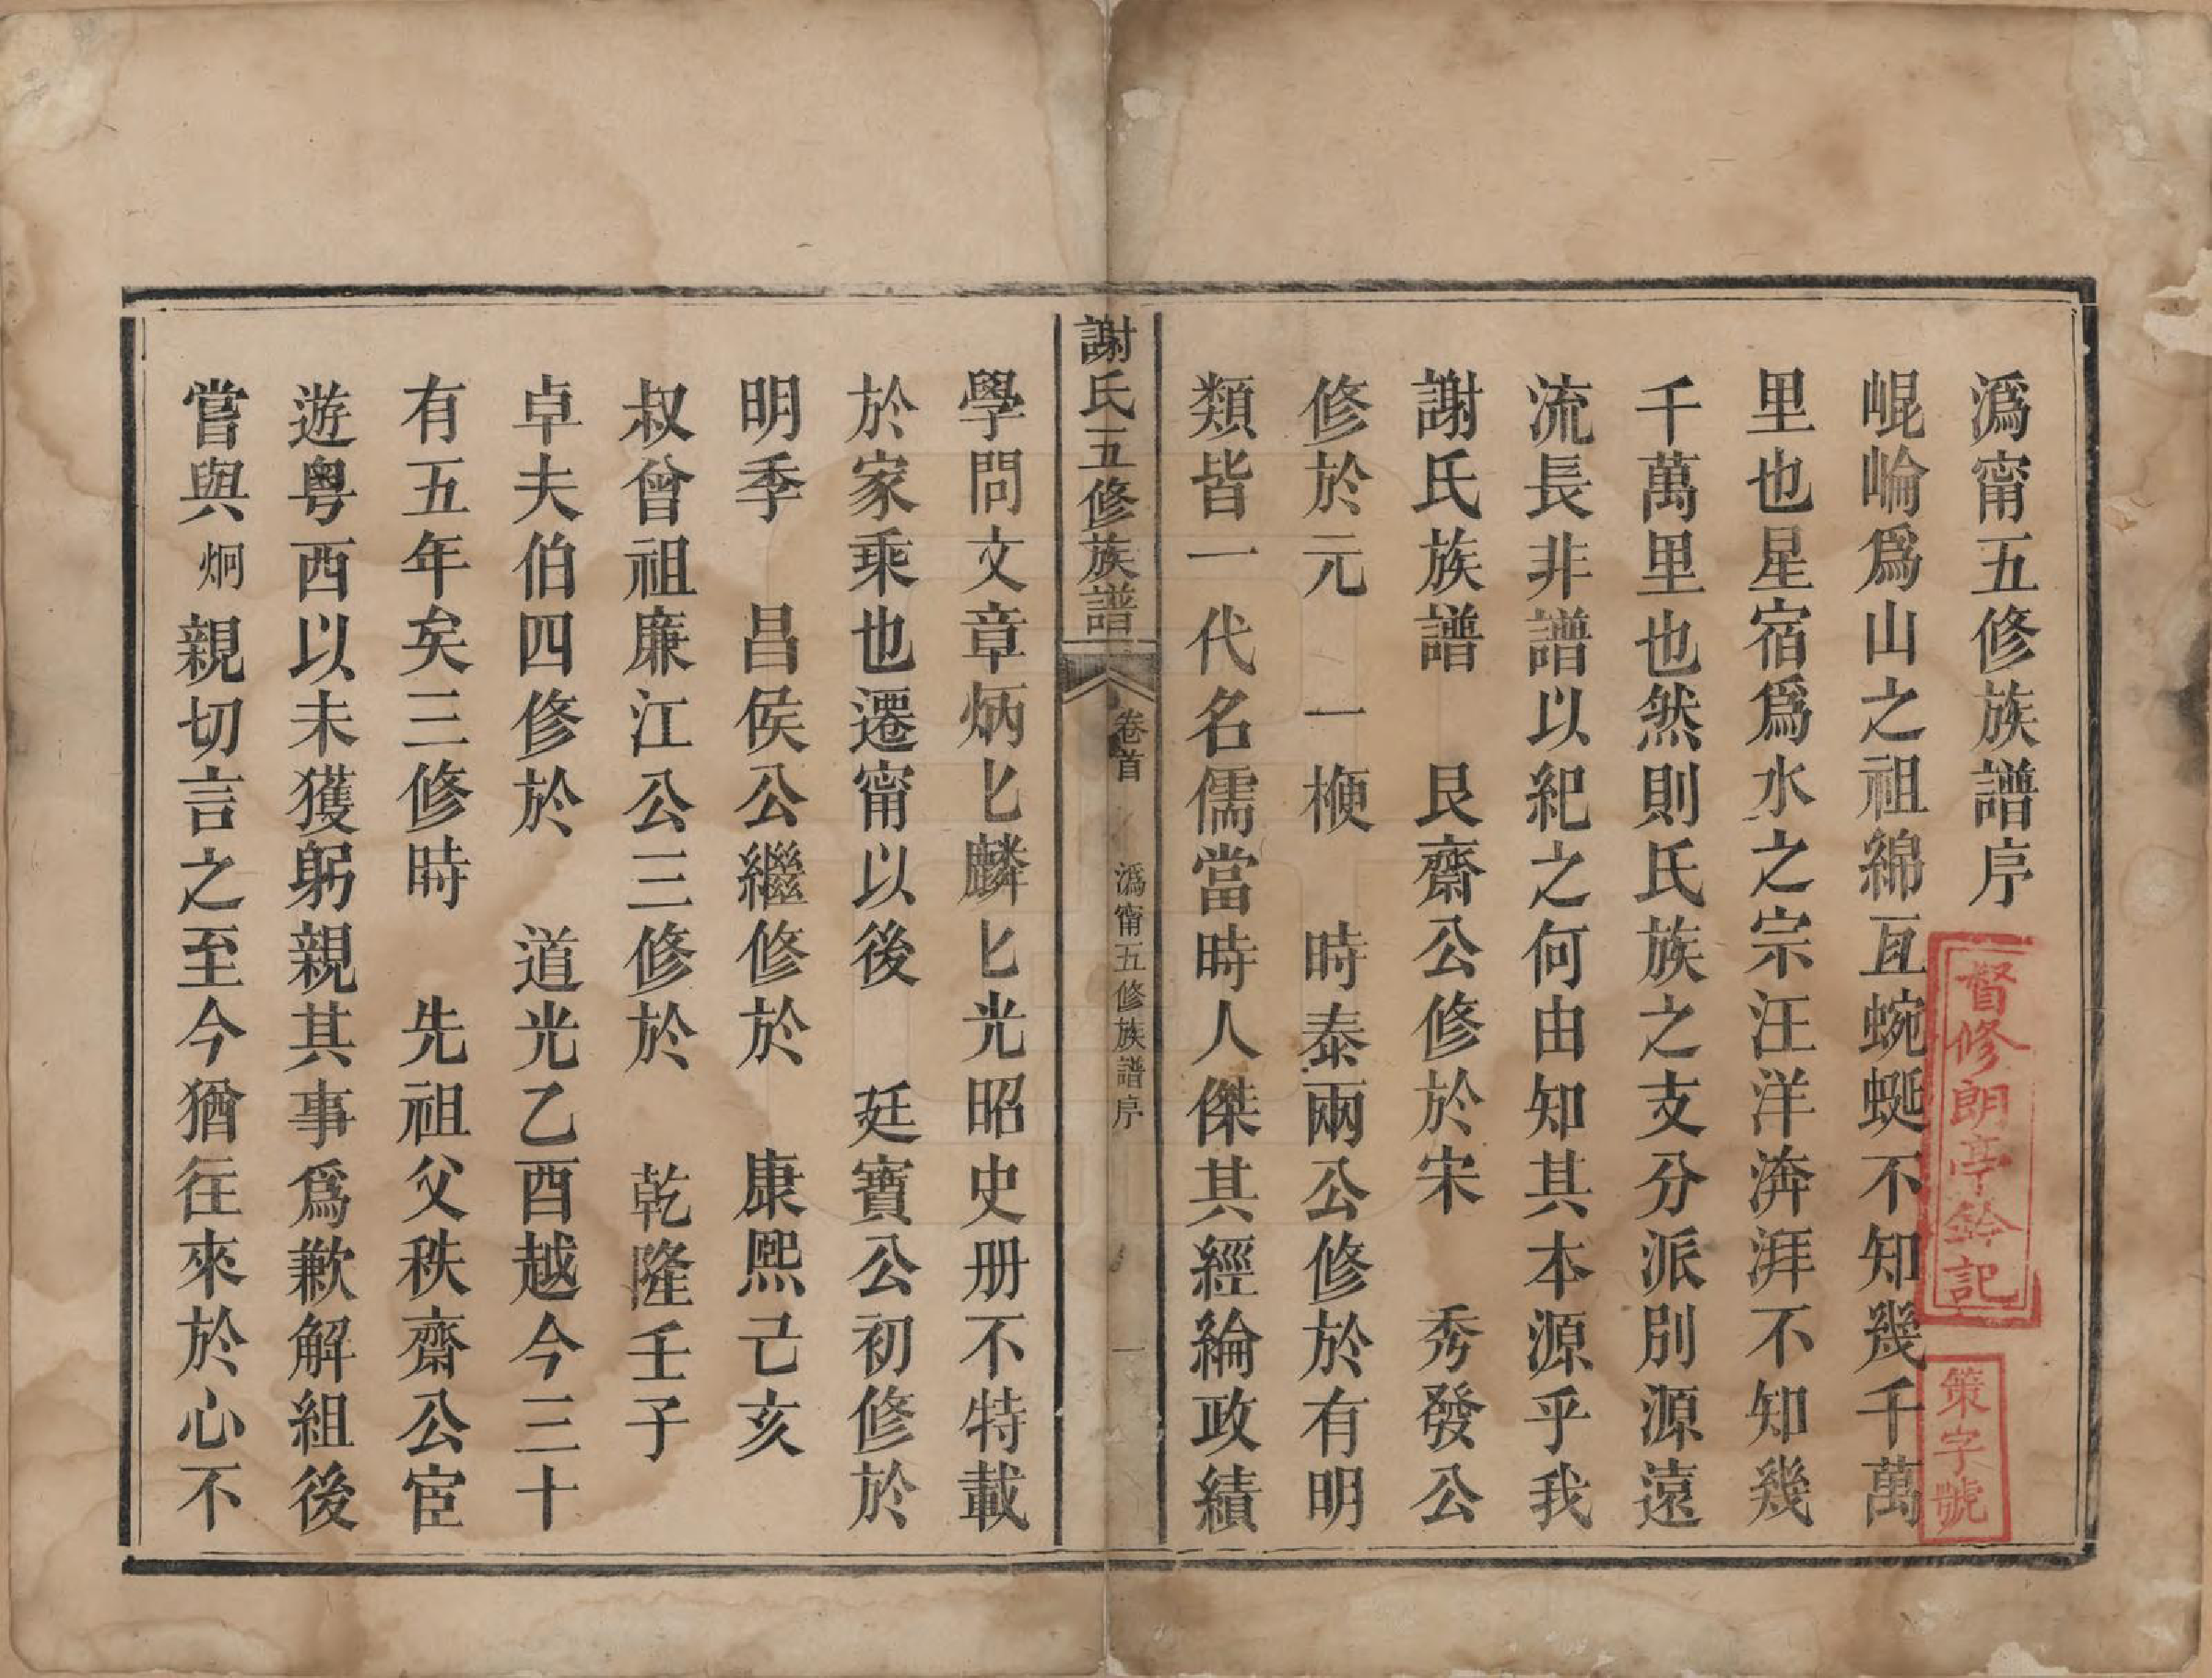 溈甯五修族譜序
崐崘爲山之祖綿亙蜿蜒不知幾千萬
里也星宿爲水之宗汪洋渀湃不知幾
千萬里也然則氏族之支分派別源遠
流長非譜以紀之何由知其本源乎我
謝氏族譜 艮齋公修於宋 秀發公
修於元 一楩 時泰兩公修於有明
類皆一代名儒當時人傑其經綸政績
謝氏五修族譜 卷首 溈甯五修族譜序 一
學問文章炳匕麟匕光昭史册不特載
於家乘也遷甯以後 廷寶公初修於
明季 昌侯公繼修於 康熙己亥
叔曾祖廉江公三修於 乾隆壬子
卓夫伯四修於 道光乙酉越今三十
有五年矣三修時 先祖父秩齋公宦
遊粵西以未獲躬親其事爲歉解組後
嘗與炯親切言之至今猶往來於心不
督修朗亭鈐記
策字號